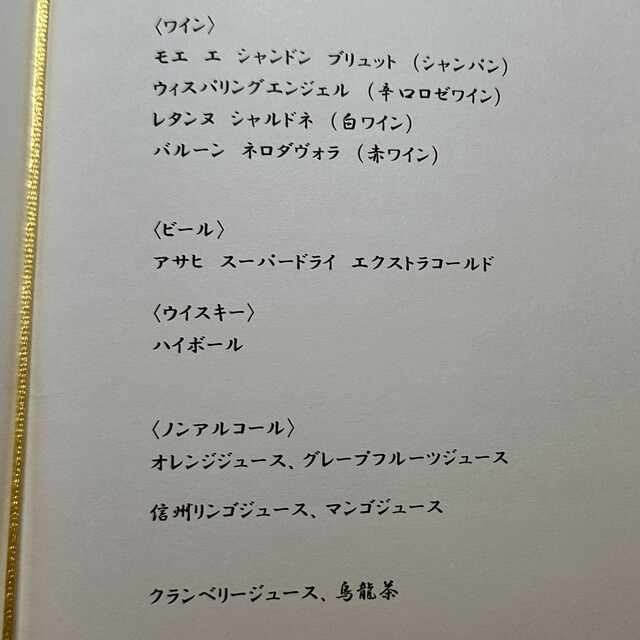 〈ワイン〉
モエ エ シャンドン ブリュット (シャンパン)
ウィスパリングエンジェル (辛口ロゼワイン)
レタンヌ シャルドネ (白ワイン)
バルーン ネロダヴォラ (赤ワイン)
〈ビール〉
アサヒ スーパードライ エクストラコールド
〈ウイスキー〉
ハイボール
〈ノンアルコール〉
オレンジジュース、グレープフルーツジュース
信州リンゴジュース、マンゴジュース
クランベリージュース、烏龍茶